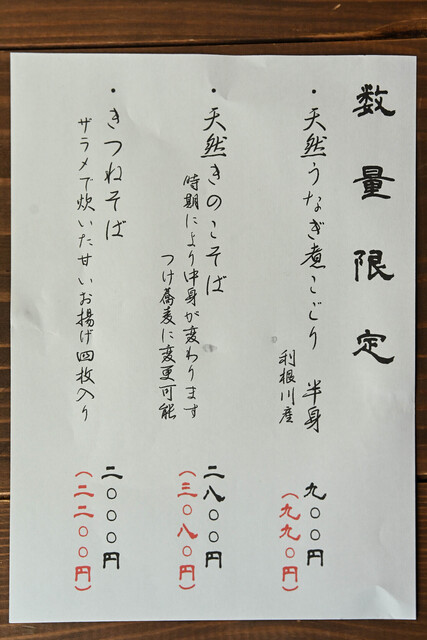 数量限定
・天然うなぎ煮こごり 半身
利根川産
九〇〇円
(九九〇円)
・天然きのこそば
時期により中身が変わります
つけ蕎麦に変更可能
二八〇〇円
(三〇八〇円)
・きつねそば
ザラメで炊いた甘いお揚げ四枚入り
二〇〇〇円
(二二〇〇円)